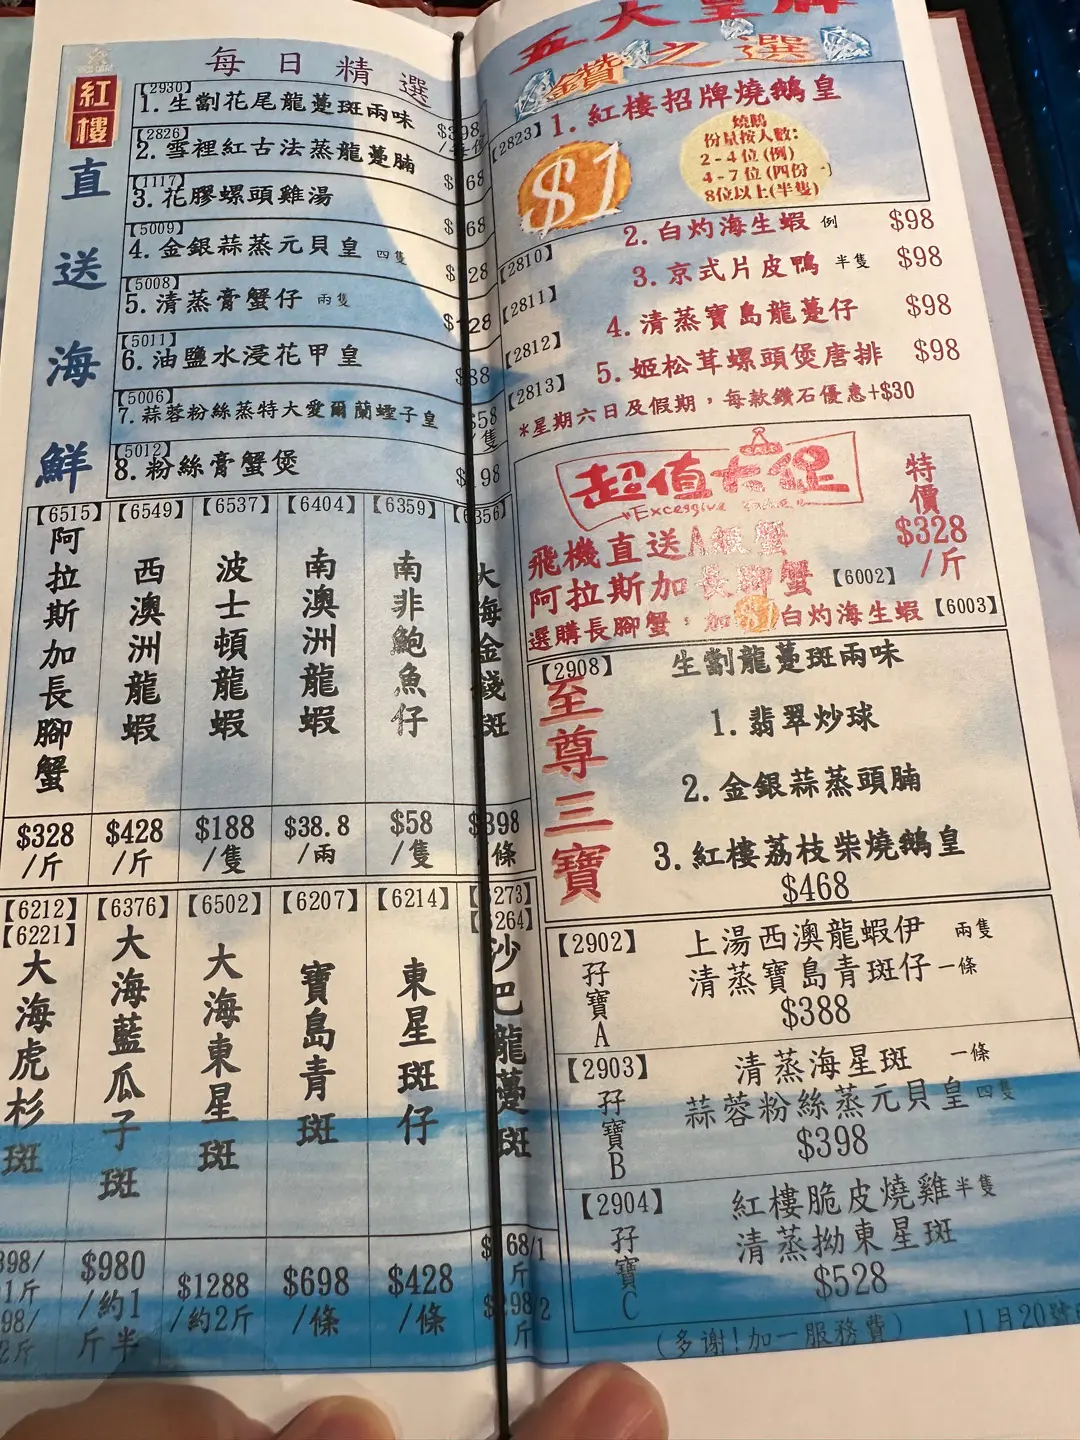 紅樓
直送海鮮
每日精選
【2930】
1. 生劏花尾龍躉斑兩味
$398
【2826】
2. 雪裡紅古法蒸龍躉腩
【1117】
3. 花膠螺頭雞湯
【5009】
4. 金銀蒜蒸元貝皇 四隻
【5008】
5. 清蒸膏蟹仔 兩隻
$128
【5011】
6. 油鹽水浸花甲皇
【5006】
7. 蒜蓉粉絲蒸特大愛爾蘭蟶子皇
/隻
【5012】
8. 粉絲膏蟹煲
【6515】
阿拉斯加長腳蟹
$328
/斤
【6549】
西澳洲龍蝦
$428
/斤
【6537】
波士頓龍蝦
$188
/隻
【6404】
南澳洲龍蝦
$38.8
/兩
【6359】
南非鮑魚仔
$58
/隻
大海金錢斑
$398
/條
【6212】
【6221】
大海虎杉斑
【6376】
大海藍瓜子斑
$980
/約1
斤半
【6502】
大海東星斑
$1288
/約2斤
【6207】
寶島青斑
$698
/條
【6214】
東星斑仔
$428
/條
沙巴龍躉斑
五大皇牌
鑽之選
【2823】
1. 紅樓招牌燒鵝皇
$1
燒鵝
份量按人數:
2-4位(例)
4-7位(四份一)
8位以上(半隻)
2. 白灼海生蝦 例 $98
【2810】
3. 京式片皮鴨 半隻 $98
【2811】
4. 清蒸寶島龍躉仔 $98
【2812】
5. 姬松茸螺頭煲唐排 $98
【2813】
*星期六日及假期，每款鑽石優惠+$30
超值大促
Excessive
特價
$328
/斤
飛機直送A級蟹
阿拉斯加長腳蟹【6002】
選購長腳蟹，加$1白灼海生蝦【6003】
【2908】
至尊三寶
生劏龍躉斑兩味
1. 翡翠炒球
2. 金銀蒜蒸頭腩
3. 紅樓荔枝柴燒鵝皇
$468
【2902】
孖寶A
上湯西澳龍蝦伊 兩隻
清蒸寶島青斑仔 一條
$388
【2903】
孖寶B
清蒸海星斑 一條
蒜蓉粉絲蒸元貝皇 四隻
$398
【2904】
孖寶C
紅樓脆皮燒雞 半隻
清蒸拗東星斑
$528
(多謝!加一服務費)
11月20號